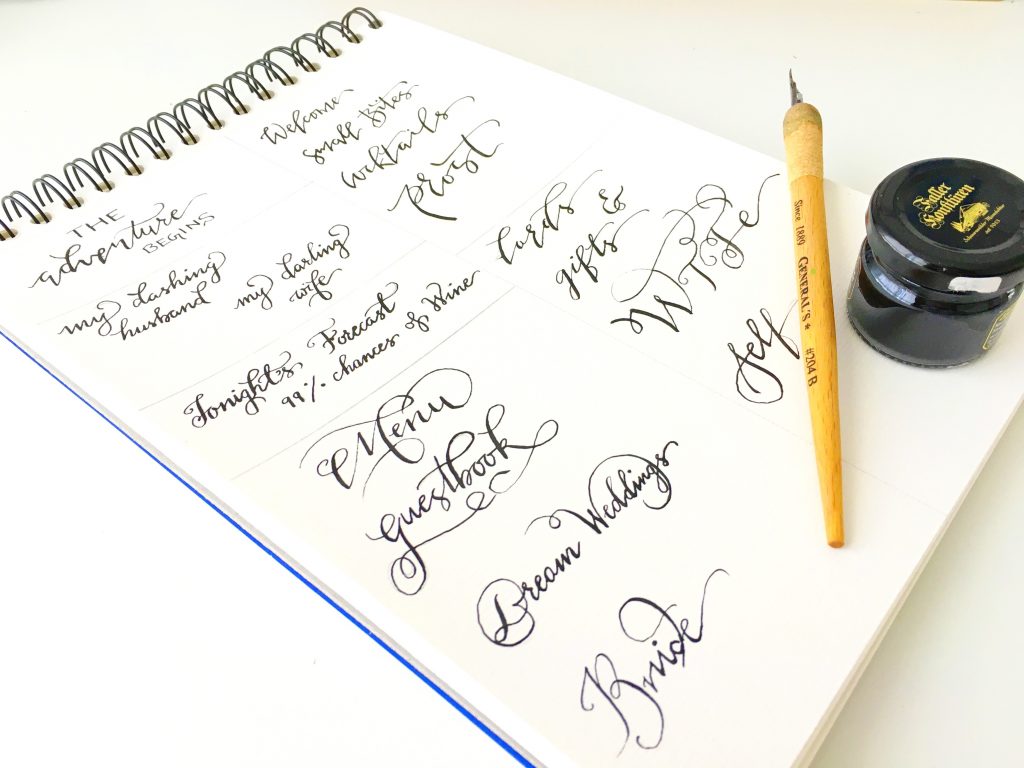 THE
adventure
BEGINS
Welcome
small bites
cocktails
prost
my dashing
husband
my darling
wife
Tonights Forecast
99% chances of Wine
Cards &
gifts
Menu
guestbook
Self
Dream Weddings
Bride
Since 1889 GENERAL'S #204 B
Faller
Konfitüren